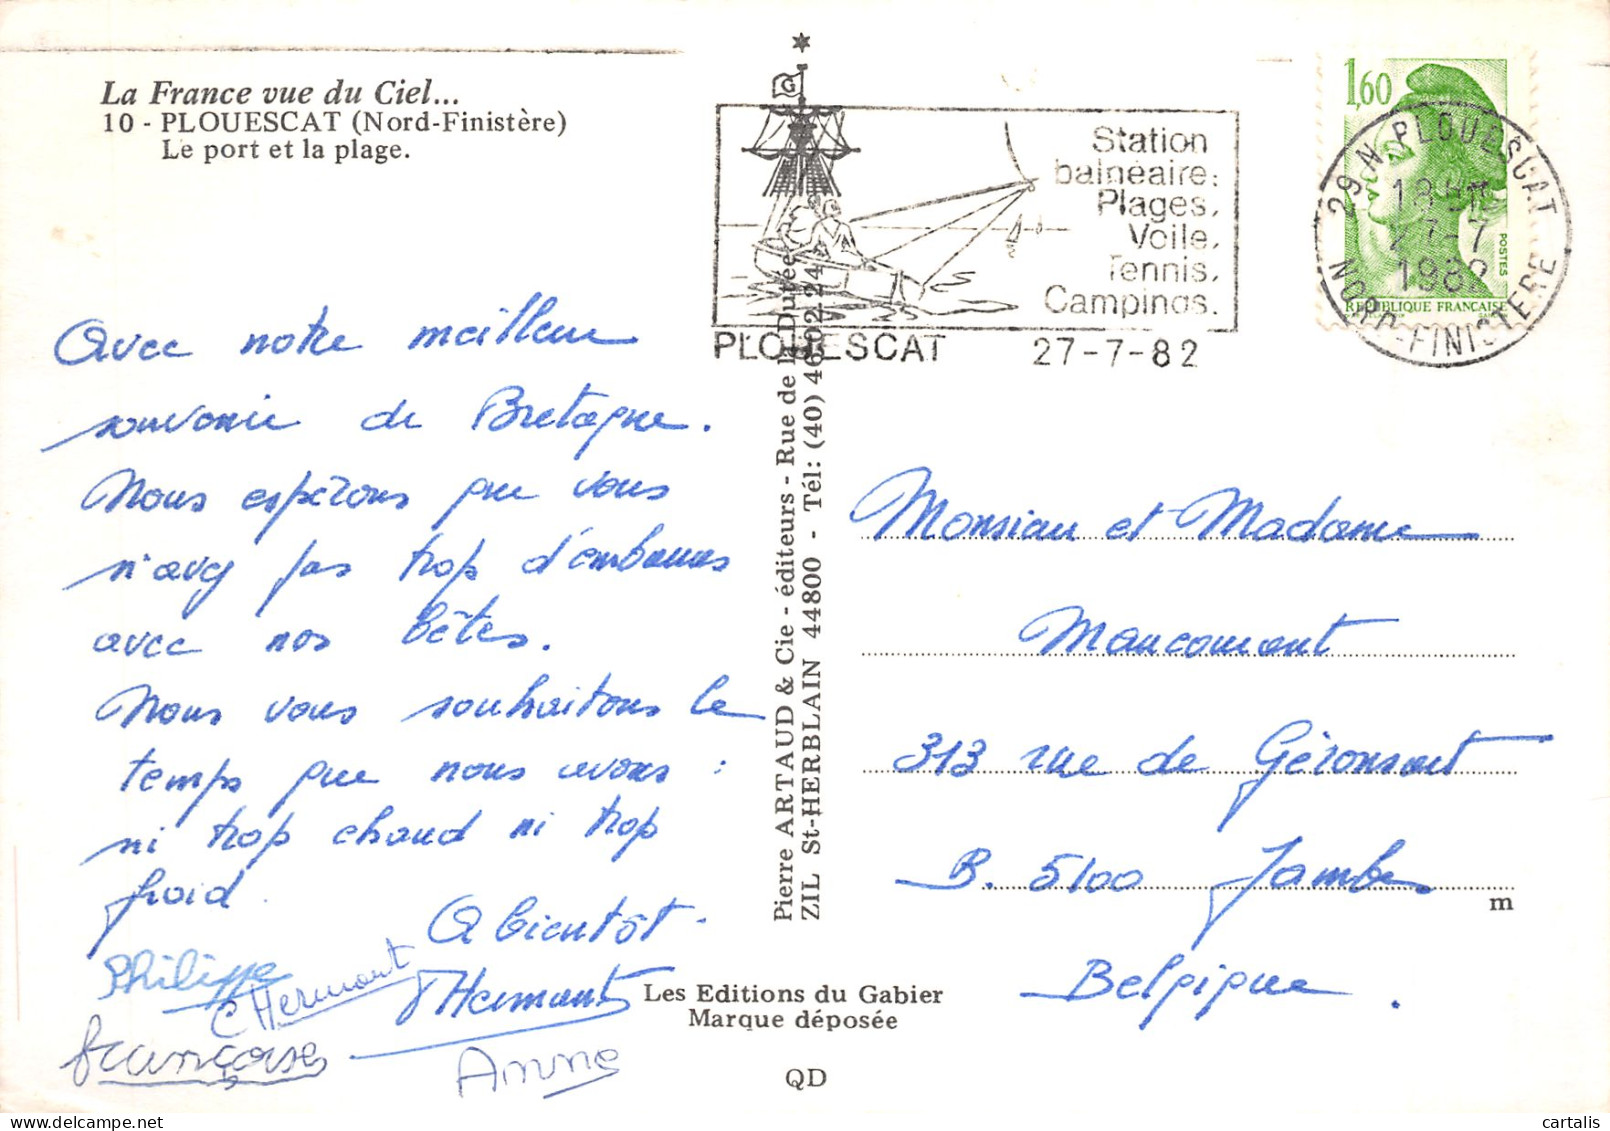 La France vue du Ciel...
10 - PLOUESCAT (Nord-Finistère)
Le port et la plage.
Avec notre meilleur
souvenir de Bretagne.
Nous espérons que vous
n'avez pas trop d'embarras
avec nos bêtes.
Nous vous souhaitons le
temps que nous avons :
ni trop chaud ni trop
froid.
A bientôt.
Philippe
C Hermont
Hermont
Françoise
Anne
Pierre ARTAUD & Cie - éditeurs - Rue de la Dutée
ZIL St-HERBLAIN 44800 - Tél: (40) 46 02 24
Les Editions du Gabier
Marque déposée
QD
G
Station
balnéaire:
Plages,
Voile,
Tennis,
Campings.
PLOUESCAT 27-7-82
1,60
POSTES
REPUBLIQUE FRANÇAISE
29 N PLOUESCAT
18H
27-7
1982
NORD-FINISTERE
Monsieur et Madame
Maucomont
313 rue de Géronsart
B. 5100 Jambes
m
Belgique.
cartalis